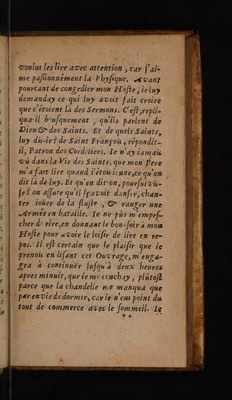 voulus les lire avec attention, car j'ai-
me passionnément la Physique. Avant
pourtant de congedier mon Hoste, ie luy
demanday ce qui luy avoit fait croire
que c'étoient là des Sermons. C'est, repli-
qua-il brusquement, qu'ils parlent de
Dieu & des Saints. Et de quels Saints,
luy dis-ie? de Saint François, répondit-
il, Patron des Cordeliers. Ie n'ay iamais
vû dans la Vie des Saints, que mon Pere
m'a fait lire quand i'étois ieune, ce qu'on
dit là de luy. Et qu'en dit-on, poursuivis-
je? on assure qu'il sçavoit danser, chan-
ter iouer de la fluste, & ranger une
Armée en bataille. Ie ne pûs m'empes-
cher de rire, en donnant le bon-soir à mon
Hoste pour avoir le loisir de lire en re-
pos. Il est certain que le plaisir que ie
prenois en lisant cet Ouvrage, m'enga-
gea à continuër jusqu'à deux heures
apres minuit, que ie me couchay, plûtost
parce que la chandelle ne manqua que
par envie de dormir, car ie n'eus point du
tout de commerce avec le sommeil. Ie